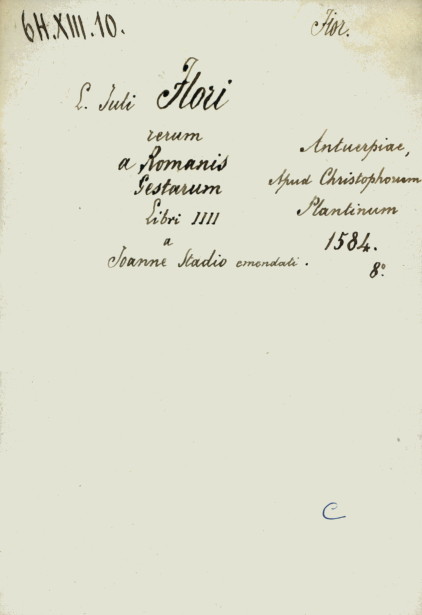 6H.XIII.10.
Flor.
L. Juli Flori
rerum
a Romanis
Gestarum
Libri IIII
a
Joanne Stadio emendati.
Antuerpiae,
Apud Christophorum
Plantinum
1584.
8º
C